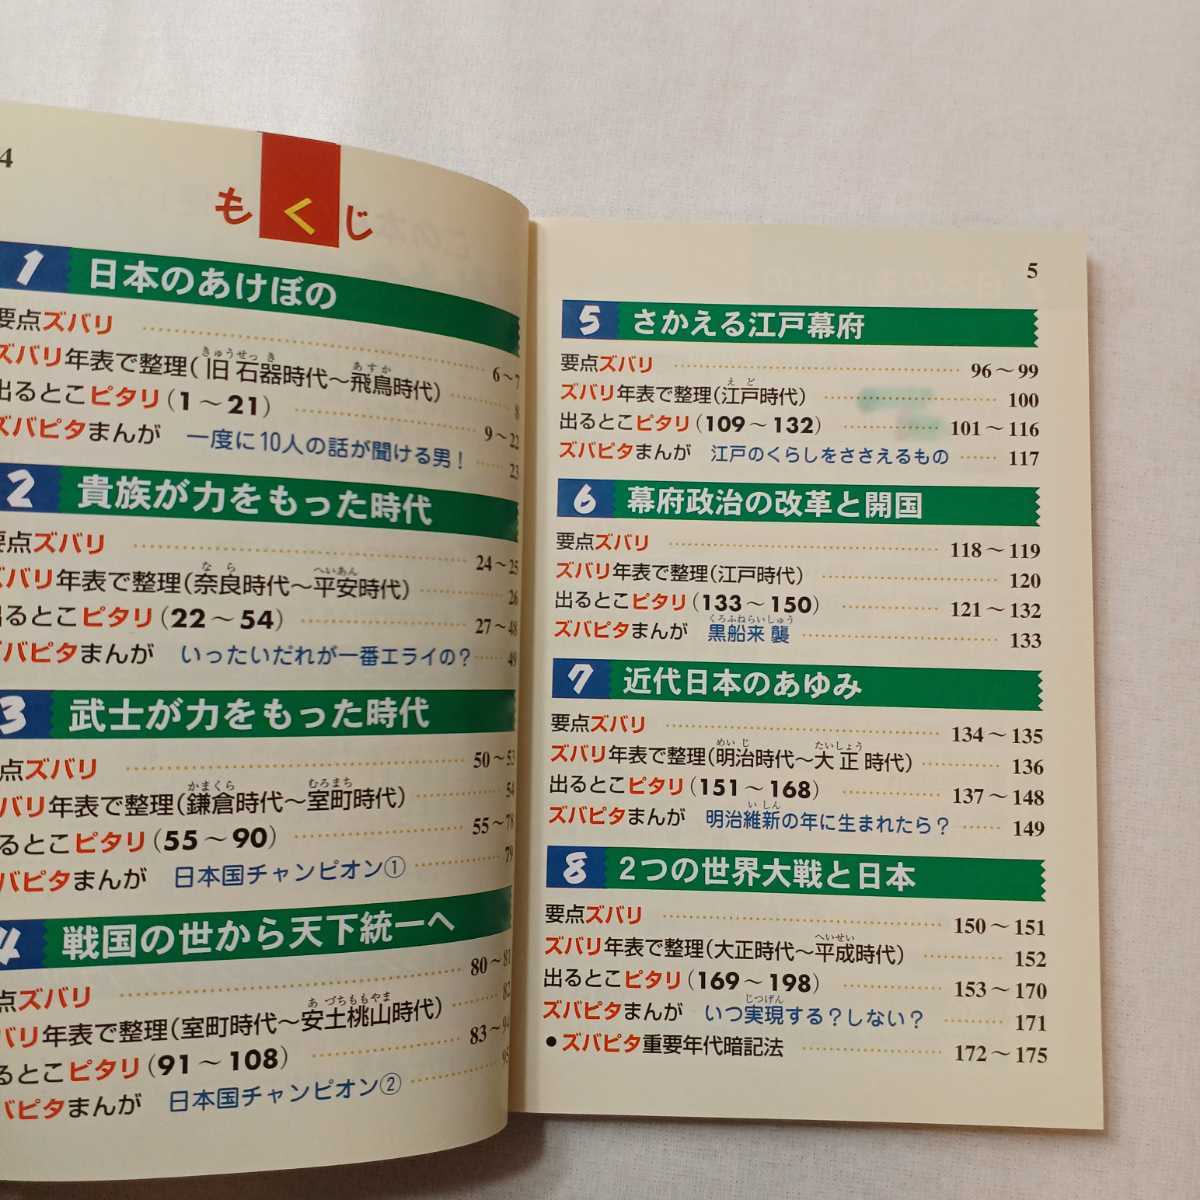 4
もくじ
1 日本のあけぼの
要点ズバリ 6～7
ズバリ年表で整理(旧石器時代～飛鳥時代) 8
きゅうせっき あすか
出るとこピタリ(1～21) 9～22
ズバピタまんが 一度に10人の話が聞ける男! 23
2 貴族が力をもった時代
要点ズバリ 24～25
ズバリ年表で整理(奈良時代～平安時代) 26
なら へいあん
出るとこピタリ(22～54) 27～48
ズバピタまんが いったいだれが一番エライの? 49
3 武士が力をもった時代
点ズバリ 50～53
バリ年表で整理(鎌倉時代～室町時代) 54
かまくら むろまち
るとこピタリ(55～90) 55～78
バピタまんが 日本国チャンピオン① 79
4 戦国の世から天下統一へ
点ズバリ 80～81
バリ年表で整理(室町時代～安土桃山時代) 82
あづちももやま
るとこピタリ(91～108) 83～94
バピタまんが 日本国チャンピオン② 95
5
5 さかえる江戸幕府
要点ズバリ 96～99
ズバリ年表で整理(江戸時代) 100
えど
出るとこピタリ(109～132) 101～116
ズバピタまんが 江戸のくらしをささえるもの 117
6 幕府政治の改革と開国
要点ズバリ 118～119
ズバリ年表で整理(江戸時代) 120
出るとこピタリ(133～150) 121～132
ズバピタまんが 黒船来襲 133
くろふねらいしゅう
7 近代日本のあゆみ
要点ズバリ 134～135
ズバリ年表で整理(明治時代～大正時代) 136
めいじ たいしょう
出るとこピタリ(151～168) 137～148
ズバピタまんが 明治維新の年に生まれたら? 149
いしん
8 2つの世界大戦と日本
要点ズバリ 150～151
ズバリ年表で整理(大正時代～平成時代) 152
へいせい
出るとこピタリ(169～198) 153～170
ズバピタまんが いつ実現する?しない? 171
じつげん
●ズバピタ重要年代暗記法 172～175